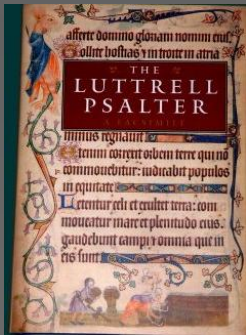 afferte domino gloriam nomini eius
ollite hostias ⁊ in troite in atria
THE
LUTTRELL
PSALTER
A FACSIMILE
minus regnauit
tenim correxit orbem terre qui nō
commouebitur: iudicabit populos
in equitate
Letentur celi et exultet terra: com
moueatur mare et plenitudo eius:
gaudebunt campi ⁊ omnia que in
eis sunt